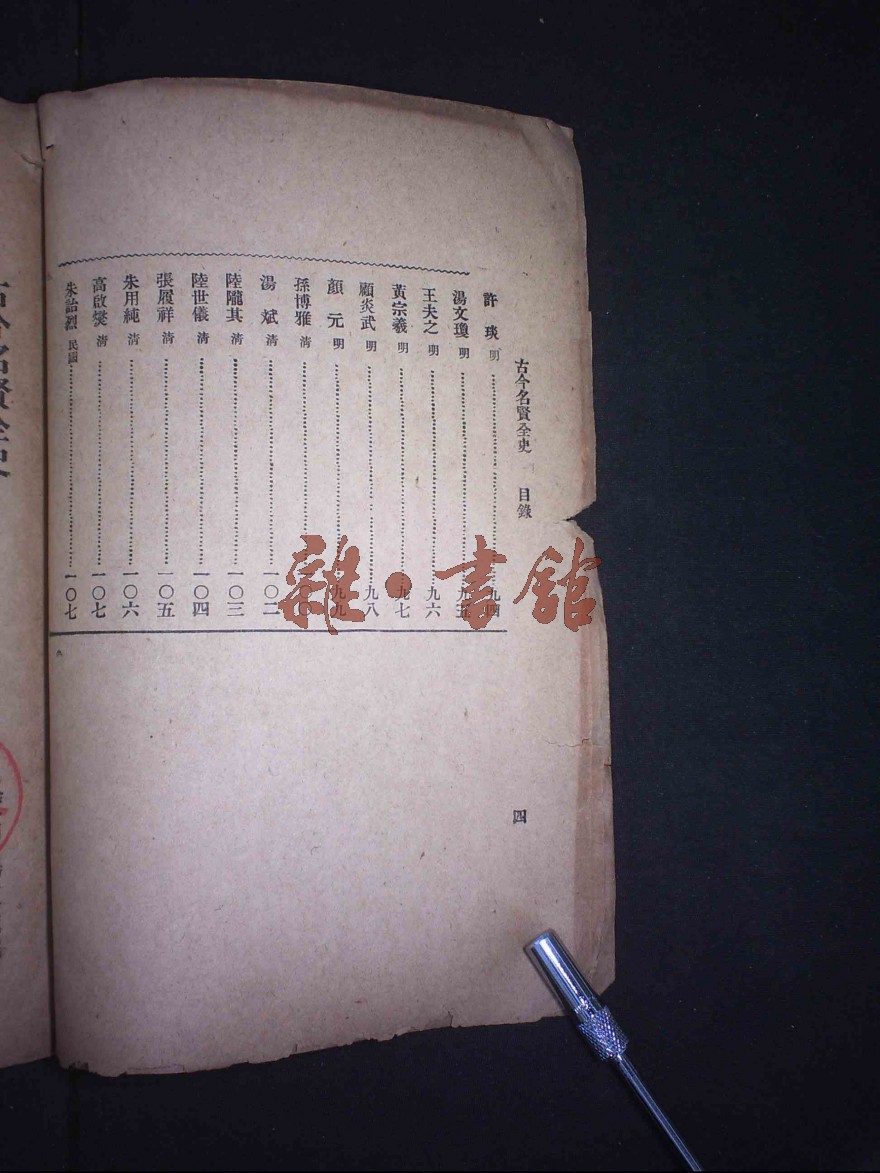 古今名賢全史 目錄 四
許琰 明 九四
湯文瓊 明 九五
王夫之 明 九六
黃宗羲 明 九七
顧炎武 明 九八
顏元 明 九九
孫博雅 清 一〇〇
湯斌 清 一〇二
陸隴其 清 一〇三
陸世儀 清 一〇四
張履祥 清 一〇五
朱用純 清 一〇六
高啟燮 清 一〇七
朱詒烈 民國 一〇七
古今名賢全史
雜·書館